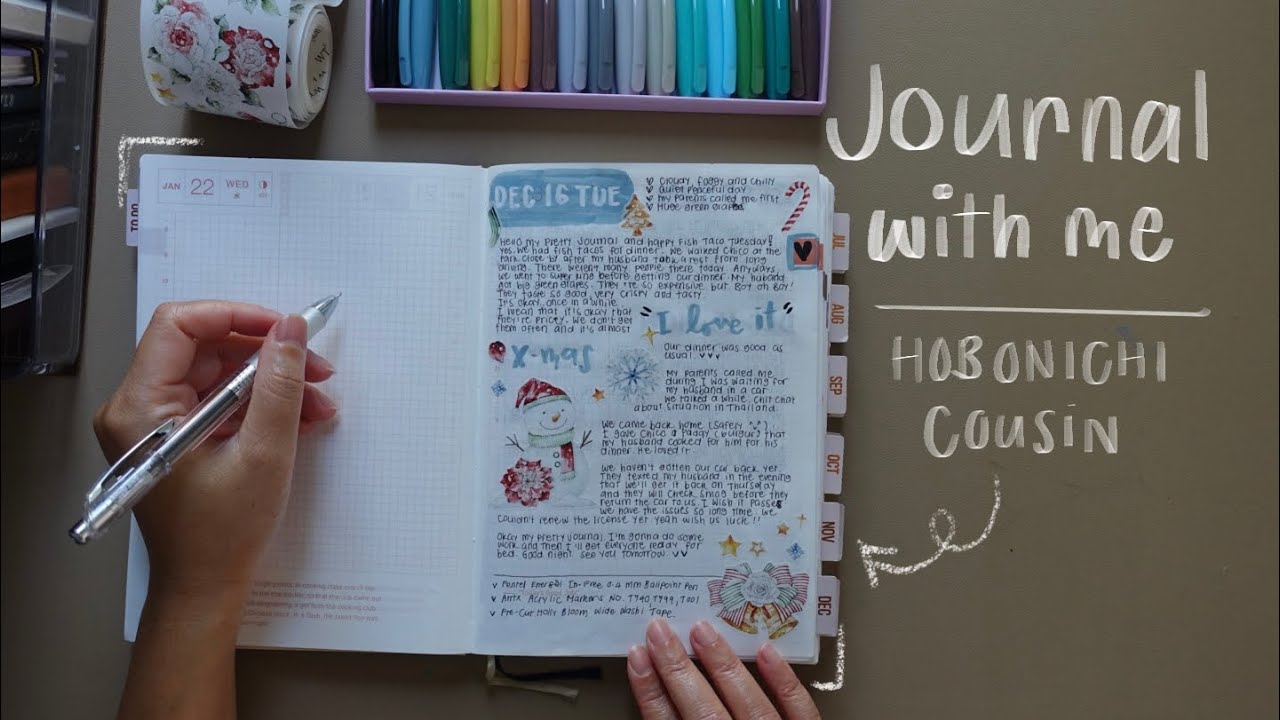 Journal
with me
HOBONICHI
COUSIN
TO DO
JAN 22 WED
DEC 16 TUE
Cloudy, foggy and chilly
Quiet peaceful day
My parents called me first
Huge green grapes
Hello my pretty journal and happy Fish Taco Tuesday!
Yes, we had fish tacos for dinner. We walked Chico at the
park close by after my husband took a rest from long
driving. There weren't many people there today. Anyways,
we went to Super King before getting our dinner. My husband
got big green grapes. They're so expensive but Boy oh Boy!
They taste so good, very crispy and tasty.
It's okay, once in a while.
I mean that it's okay that
they're pricey. We don't get
them often and it's almost
X-mas
"I love it"
Our dinner was good as
usual.
My parents called me
during I was waiting for
my husband in a car.
We talked a while. Chit chat
about situation in Thailand.
We came back home (safely)
I gave Chico a paddy (bulgur) that
my husband cooked for him for his
dinner. He loved it.
We haven't gotten our car back yet.
They texted my husband in the evening
that we'll get it back on Thursday
and they will check smog before they
return the car to us. I wish it passes
We have the issues so long time. We
couldn't renew the license yet yeah wish us luck!!
Okay my pretty journal. I'm gonna do some
work and then I'll get everyone ready for
bed. Good night. See you tomorrow.
Pentel Energel In-Free 0.4 mm Ballpoint Pen
Arrtx Acrylic Markers NO. T740 T799, T001
Pre-Cut Holly Bloom Wide Washi Tape.
JUL
AUG
SEP
OCT
NOV
DEC